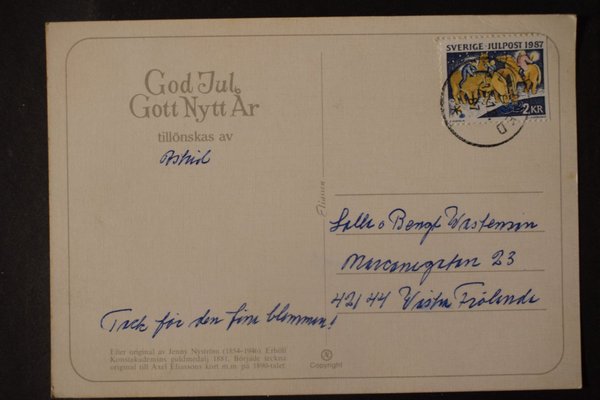 God Jul
Gott Nytt År
tillönskas av
Astrid
Tack för den fina blomman!
Efter original av Jenny Nyström (1854-1946). Erhöll
Konstakademins guldmedalj 1881. Började teckna
original till Axel Eliassons kort m.m. på 1890-talet.
SVERIGE · JULPOST 1987
2 KR
Eliasson
Salla o Bengt Wastenson
23
421 44 Västra Frölunda
Copyright